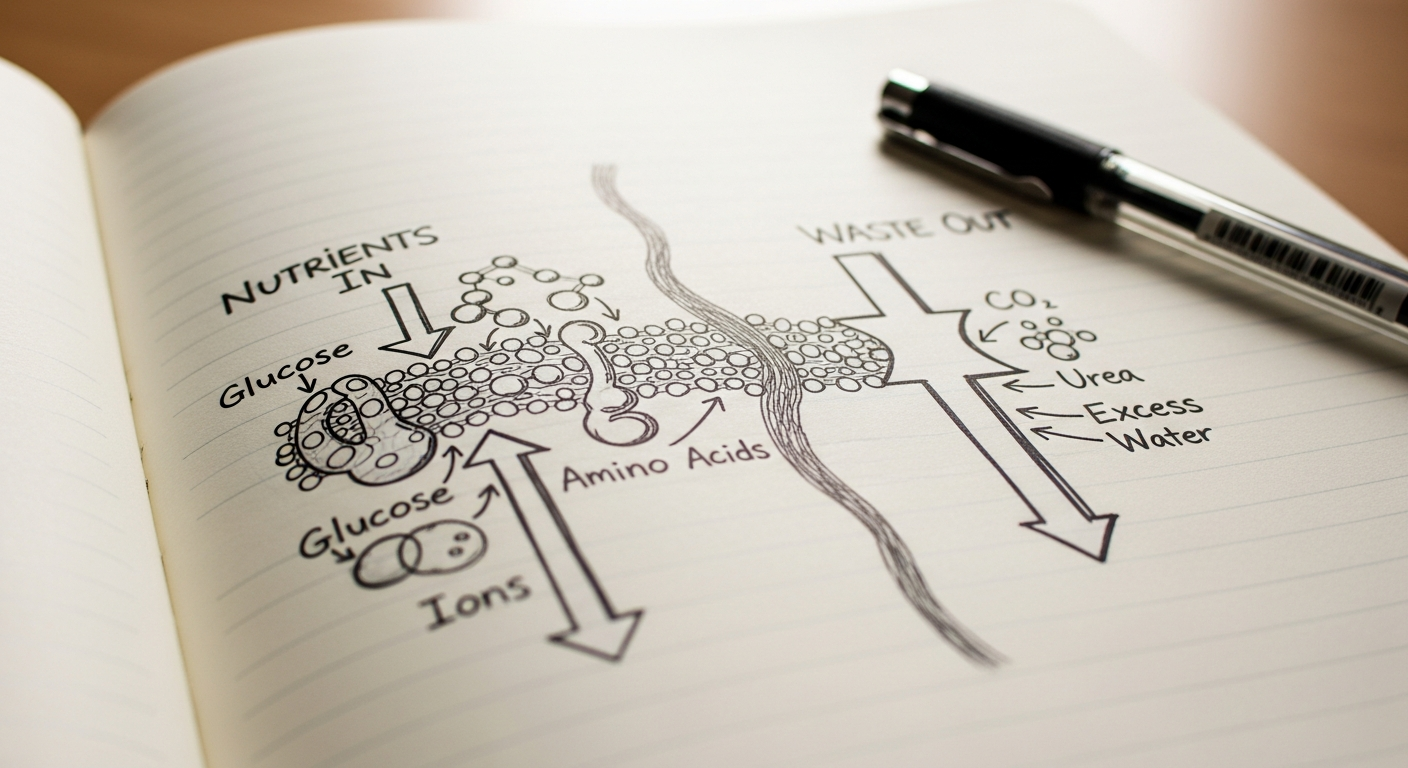 NUTRIENTS
IN
Glucose
Glucose
Ions
Amino Acids
WASTE OUT
CO₂
Urea
Excess
Water